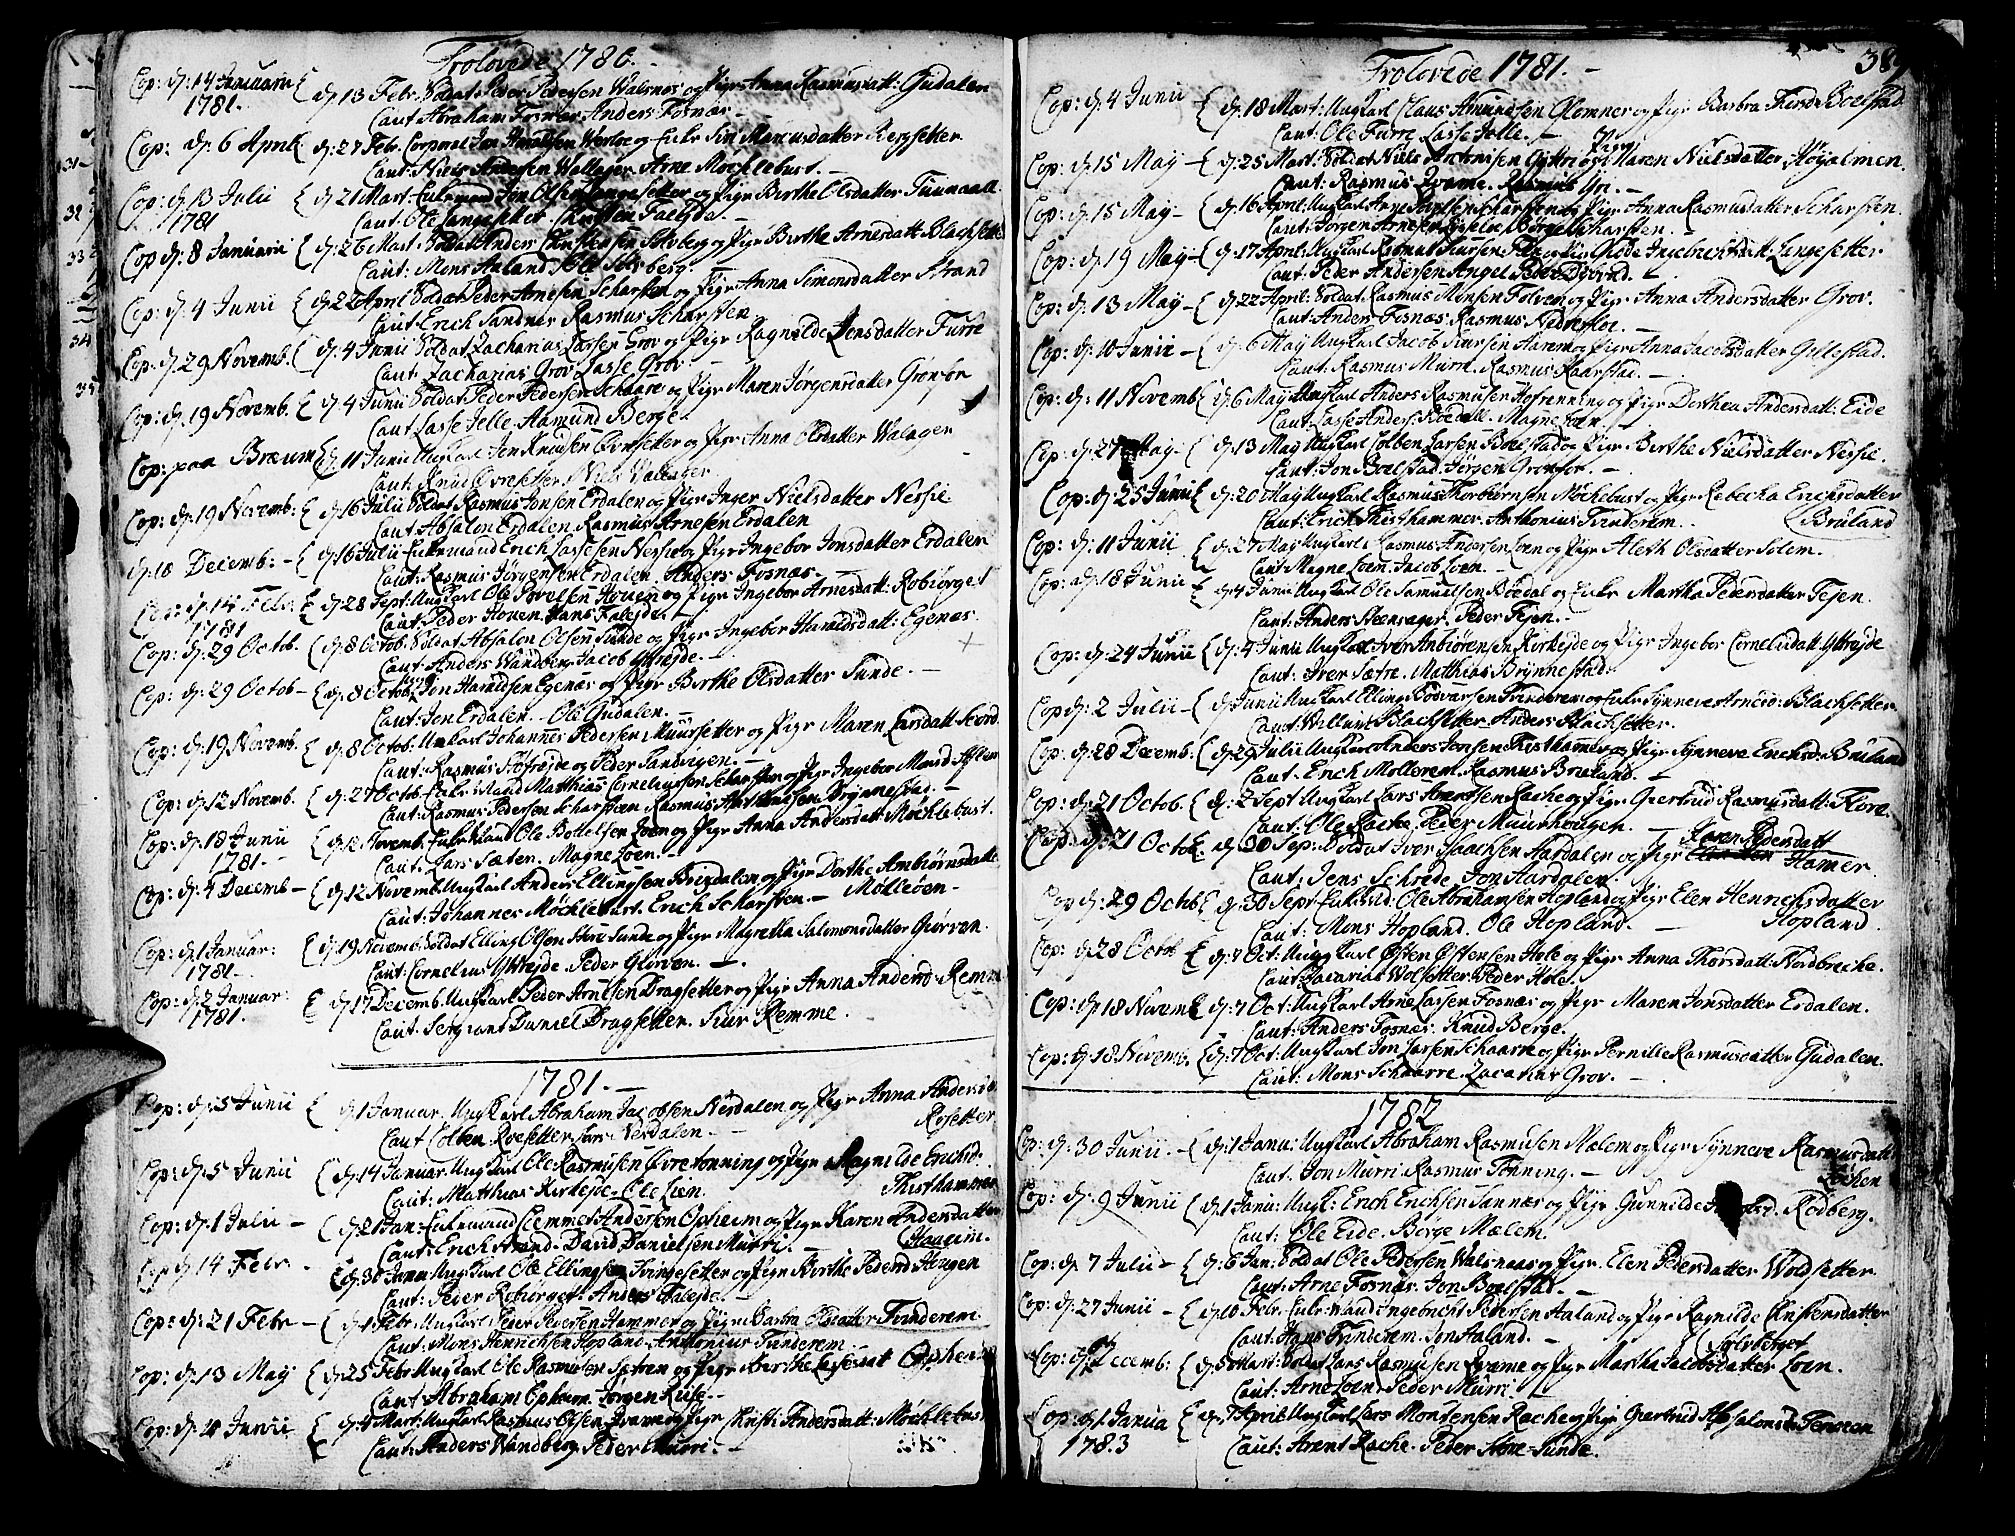 Trolovede 1780.
Cop: d: 14 Januarii { d 13 Febr. Soldat Peder Pedersen Walsnæs og Pige Anna Rasmusdatt: Gudalen
1781. Caut Abraham Fosnæs Anders Fosnæs.
Cop: d: 6 April { d: 27 Febr. Corporal Jon og Enke Siri Marcusdatter Bergsetter
Caut: Niels Andersen Wallager Arne Mochlebust.
Cop: d: 13 Julii { d: 21 Mart. Enkemand Jon Olsen Langesetter og Pige Berthe Olsdatter
1781 Caut: Ole Langesetter Christen Faleide.
Cop d: 8 Januarii { d: 26 Mart. Soldat Anders Christensen Solsberg og Pige Berthe Arnesdatt: Blachsetter
Caut: Mons Aaland Ole Solsberg.
Cop: d: 4 Junii { d: 22 April Soldat Peder Arnesen Scharsten og Pige Anna Simonsdatter Strand
Caut: Erich Sandnes Rasmus Scharsten
Cop: d: 29 Novemb. { d: 4 Junii Soldat Zacharias Lassen Grov og Pige Ragnilde Jensdatter Furre
Caut Zacharias Grov Lasse Grov.
Cop: d: 19 Novemb. { d: 4 Junii Soldat Peder Pedersen Schaare og Pige Maren Jørgensdatter Grønfør
Caut Lasse Jelle Aamund Berge.
Cop: paa Bræum { d: 11 Junii Ungkarl Jon Knudsen Øvresetter og Pige Anna Olsdatter Walager
Caut Knud Øvresetter Niels Walager
Cop: d: 19 Novemb: { d: 16 Julii Soldat Rasmus Jonsen Erdalen og Pige Inger Nielsdatter Nersie
Caut Absalon Erdalen Rasmus Arnesen Erdalen
d: 10 Decemb: { d: 16 Julii Enkemand Erich Lassesen Nersie og Pige Ingebor Jonsdatter Erdalen
Caut: Rasmus Jørgensen Erdalen Anders Fosnæs.
Cop: d: 14 Febr. { d: 28 Sept: Ungkarl Ole Hoven og Pige Ingebor Arnesdatt: Robiørget
1781 Caut: Peder Hoven Hans Faleide.
Cop: d: 29 Octob. { d: 8 Octob. Soldat Absalon Olsen Sunde og Pige Ingebor Haraldsdatt: Egenæs
Caut: Anders Wandberg Jacob Yttrejde.
Cop: d: 29 Octob { d: 8 Octob. Jon Haraldsen Egenæs og Pige Berthe Olsdatter Sunde.
Caut: Jon Erdalen. Ole Gudalen.
Cop: d: 19 Novemb. { d: 8 Octob: Unkarl Johannes Pedersen Muursetter og Pige Maren Larsdatt:
Caut: Rasmus Høfrejde og Peder Sandvigen.
Cop: d: 12 Novemb. { d: 27 Octob. Enkemand Matthias Corneliussen Scharsten og Pige Ingebor Monsd
Caut: Rasmus Pedersen Scharsten Rasmus Brynnestad.
Cop: d: 18 Junii { d: 12 Novemb. Enkemand Ole Bottelsen Loen og Pige Anna Andersdatt: Møchlebust.
1781. Caut: Lars Sæten. Magne Loen.
Cop: d: 4 Decemb { d: 12 Novemb. Ungkarl Anders Ellingsen Bredalen og Pige Dorthe Ambiørnsdatter
Caut: Johannes Møchlebust. Erich Scharsten. Mølleøen
Cop: d: 1 Januar: { d: 19 Novemb: Soldat Elling Olsen Store Sunde og Pige Magretha Salomonsdatter Giørven.
1781. Caut: Cornelius Yttrejde Peder Giørven.
Cop: d: 2 Januar: { d: 17 Decemb. Ungkarl Peder Arnesen Dragsetter og Pige Anna Andersd. Remme
1781. Caut: Sergiant Daniel Dragsetter. Siur Remme.
1781.
Cop: d: 5 Junii { d: 1 Januar. Ungkarl Abraham Jacobsen Nesdalen og Pige Anna Andersd.
Caut Colben Roesetter Lars Nesdalen. Rosetter
Cop: d: 5 Junii { d: 14 Januar. Ungkarl Ole Rasmusen Øvretonning og Pige Magnilde Erichsd.
Caut: Matthias Kirkejde Ole Lien. Thisthammer
Cop: d: 1 Julii { d: 21 Jan: Enkemand Clemmet Andersen Opheim og Pige Karen Andersdatter
Caut: Erich Strand. David Danielsen Murri. Haugim.
Cop d: 14 Febr. { d: 30 Janu: Ungkarl Ole Ellingsen Svingesetter og Pige Birthe Pedersd Hougen
Caut: Peder Robiørget Anders Faleide.
Cop: d: 21 Febr { d: 1 Febr. Ungkarl Peder Pedersen Hammer og Pige Barbra Olsdatter Tvinderem
Caut: Mons Henrichsen Hopland. Anthonius Tvinderem
Cop: d: 13 May { d: 25 Febr. Ungkarl Ole Rasmusen Sætren og Pige Berthe Opheim
Caut Abraham Opheim Jørgen Ruse.
Cop: d: 4 Junii { d: 4 Mart: Ungkarl Rasmus Olsen Qvame og Pige Christi Andersdatt: Møchlebust
Caut: Anders Wandberg Peder Murri.
Trolovede 1781. 389
Cop: d: 4 Junii { d: 18 Mart: Ungkarl Claus Amundsen Glomner og Pige Barbra Boelstad
Caut: Ole Furre Lasse Jelle.
Cop: d: 15 May { d: 25 Mart. Soldat Niels Antonisen Gyttri og Pige Maren Nielsdatter Høyalmen.
Caut: Rasmus Qvame. Rasmus Gri.
Cop: d: 15 May { d: 16 April: Ungkarl Arne Scharsten og Pige Anna Rasmusdatter Scharsten.
Caut: Jørgen Arnesen Børge Scharsten.
Cop: d: 19 May { d: 17 April: Ungkarl Rasmus Siursen Ingebor Langesetter
Caut: Peder Andersen Angel Peder
Cop: d: 13 May { d: 22 April: Soldat Rasmus Monsen Folven og Pige Anna Andersdatter Grov.
Caut: Anders Fosnæs Rasmus Nedrefloe.
Cop: d: 10 Junii { d: 6 May Ungkarl Jacob Siursen Aarem og Pige Anna Jacobsdatter Gillestad.
Caut: Rasmus Muri. Rasmus Raarstad.
Cop: d: 11 Novemb { d: 6 May Ungkarl Anders Rasmusen Høfrenning og Pige Dorthea Andersdatt: Eide
Caut: Lasse Anders: Bødall. Magne Loen
Cop: d: 27 May { d: 13 May Ungkarl Colben Larsen Boelstad og Pige Berthe Nielsdatter Nersie.
Caut: Jon Boelstad. Jørgen Grønfør.
Cop: d: 25 Junii { d: 20 May Ungkarl Rasmus Thorbiørnsen Møchebust og Pige Rebecha Erichsdatter
Caut: Erich Thisthammer Anthonius Tvinderem. Bruland
Cop: d: 11 Junii { d: 27 May Ungkarl Rasmus Andersen Loen og Pige Aleth Olsdatter Solem.
Caut: Magne Loen. Jacob Loen.
Cop: d: 18 Junii { d: 4 Junii Ungkarl Ole Samuelsen Bødal og Enke Martha Pedersdatter Tejen.
Caut: Anders Steensager. Peder Tejen.
Cop: d: 24 Junii { d: 4 Junii Ungkarl Iver Anbiørnsen Kirkejde og Pige Ingebor Cornelisdatt: Yttrejde
Caut: Iver Sætre. Matthias Brynnestad.
Cop d: 2 Julii { d: Junii Ungkarl Elling Tvinderem og Enke Synneve Arnesd: Blachsetter
Caut: Willum Blachsetter Anders Blachsetter.
Cop: d: 28 Decemb. { d: 29 Julii Ungkarl Anders Jonsen Thisthammer og Pige Synneve Erichsd: Bruland
Caut. Erich Mollerem. Rasmus Bruland.
Cop: d: 21 Octob. { d: 2 Sept Ungkarl Lars Arentsen Rache og Pige Giertrud Rasmusdatt: Flore.
Caut: Ole Rache Peder Muurhougen.
Cop: d: 21 Octob. { d: 30 Sep: Soldat Iver Isachsen Aardalen og Pige Karen Pedersdatt Hamer.
Caut: Jens Schrede Jon Aardalen.
Cop d: 29 Octob { d: 30 Sept Enkemd: Ole Abrahamsen Hopland og Pige Elen Henrichsdatter
Caut: Mons Hopland. Ole Hopland. Hopland.
Cop: d: 28 Octb { d: 7 Oct: Ungkarl Østen Østensen Hole og Pige Anna Thorsdatt: Nordbreche.
Caut Zacarias Wolsetter Peder Hole.
Cop: d: 18 Novem { d: 7 Oct: Ungkarl Arne Lassen Fosnæs og Pige Maren Jonsdatter Erdalen.
Caut: Anders Fosnæs. Knud Berge.
Cop: d: 18 Novemb. { d: 7 Oct: Ungkarl Jon Larsen Schaarre og Pige Pernille Rasmusdatter Gudalen.
Caut: Mons Schaarre. Zacarias Grov.
1782
Cop: d: 30 Junii { d: 1 Janu: Ungkarl Abraham Rasmusen Malem og Pige Synneve Rasmusdatter
Caut: Jon Murri. Rasmus Tonning.
Cop: d: 9 Junii { d: 1 Janu: Ungk: Erich Erichsen Sannæs og Pige Gunnilde Rødberg.
Caut: Ole Eide. Børge Mælem.
Cop: d: 7 Julii { d: 6 Jan: Soldat Ole Pedersen Walsnaas og Pige Elen Pedersdatter Woldsetter
Caut: Arne Fosnæs. Jon Boelstad.
Cop: d: 27 Junii { d: 10 Febr. Enke: Mand Ingebricht Pedersen Aaland og Pige Ragnilde Christensdatter
Caut: Hans Tvinderem. Jon Aaland. Solsberget
Cop: d: Decemb: { d: 5 Mart: Soldat Lars Rasmusen Qvame og Pige Martha Jacobsdatter Loen.
Caut: Arne Loen. Peder Murri
Cop: d: 1 Janua { d: 7 April Ungkarl Lars Monsensen Rache og Pige Giertrud Absalonsd: Tenden
1783 Caut: Arent Rache. Peder Store-Sunde.